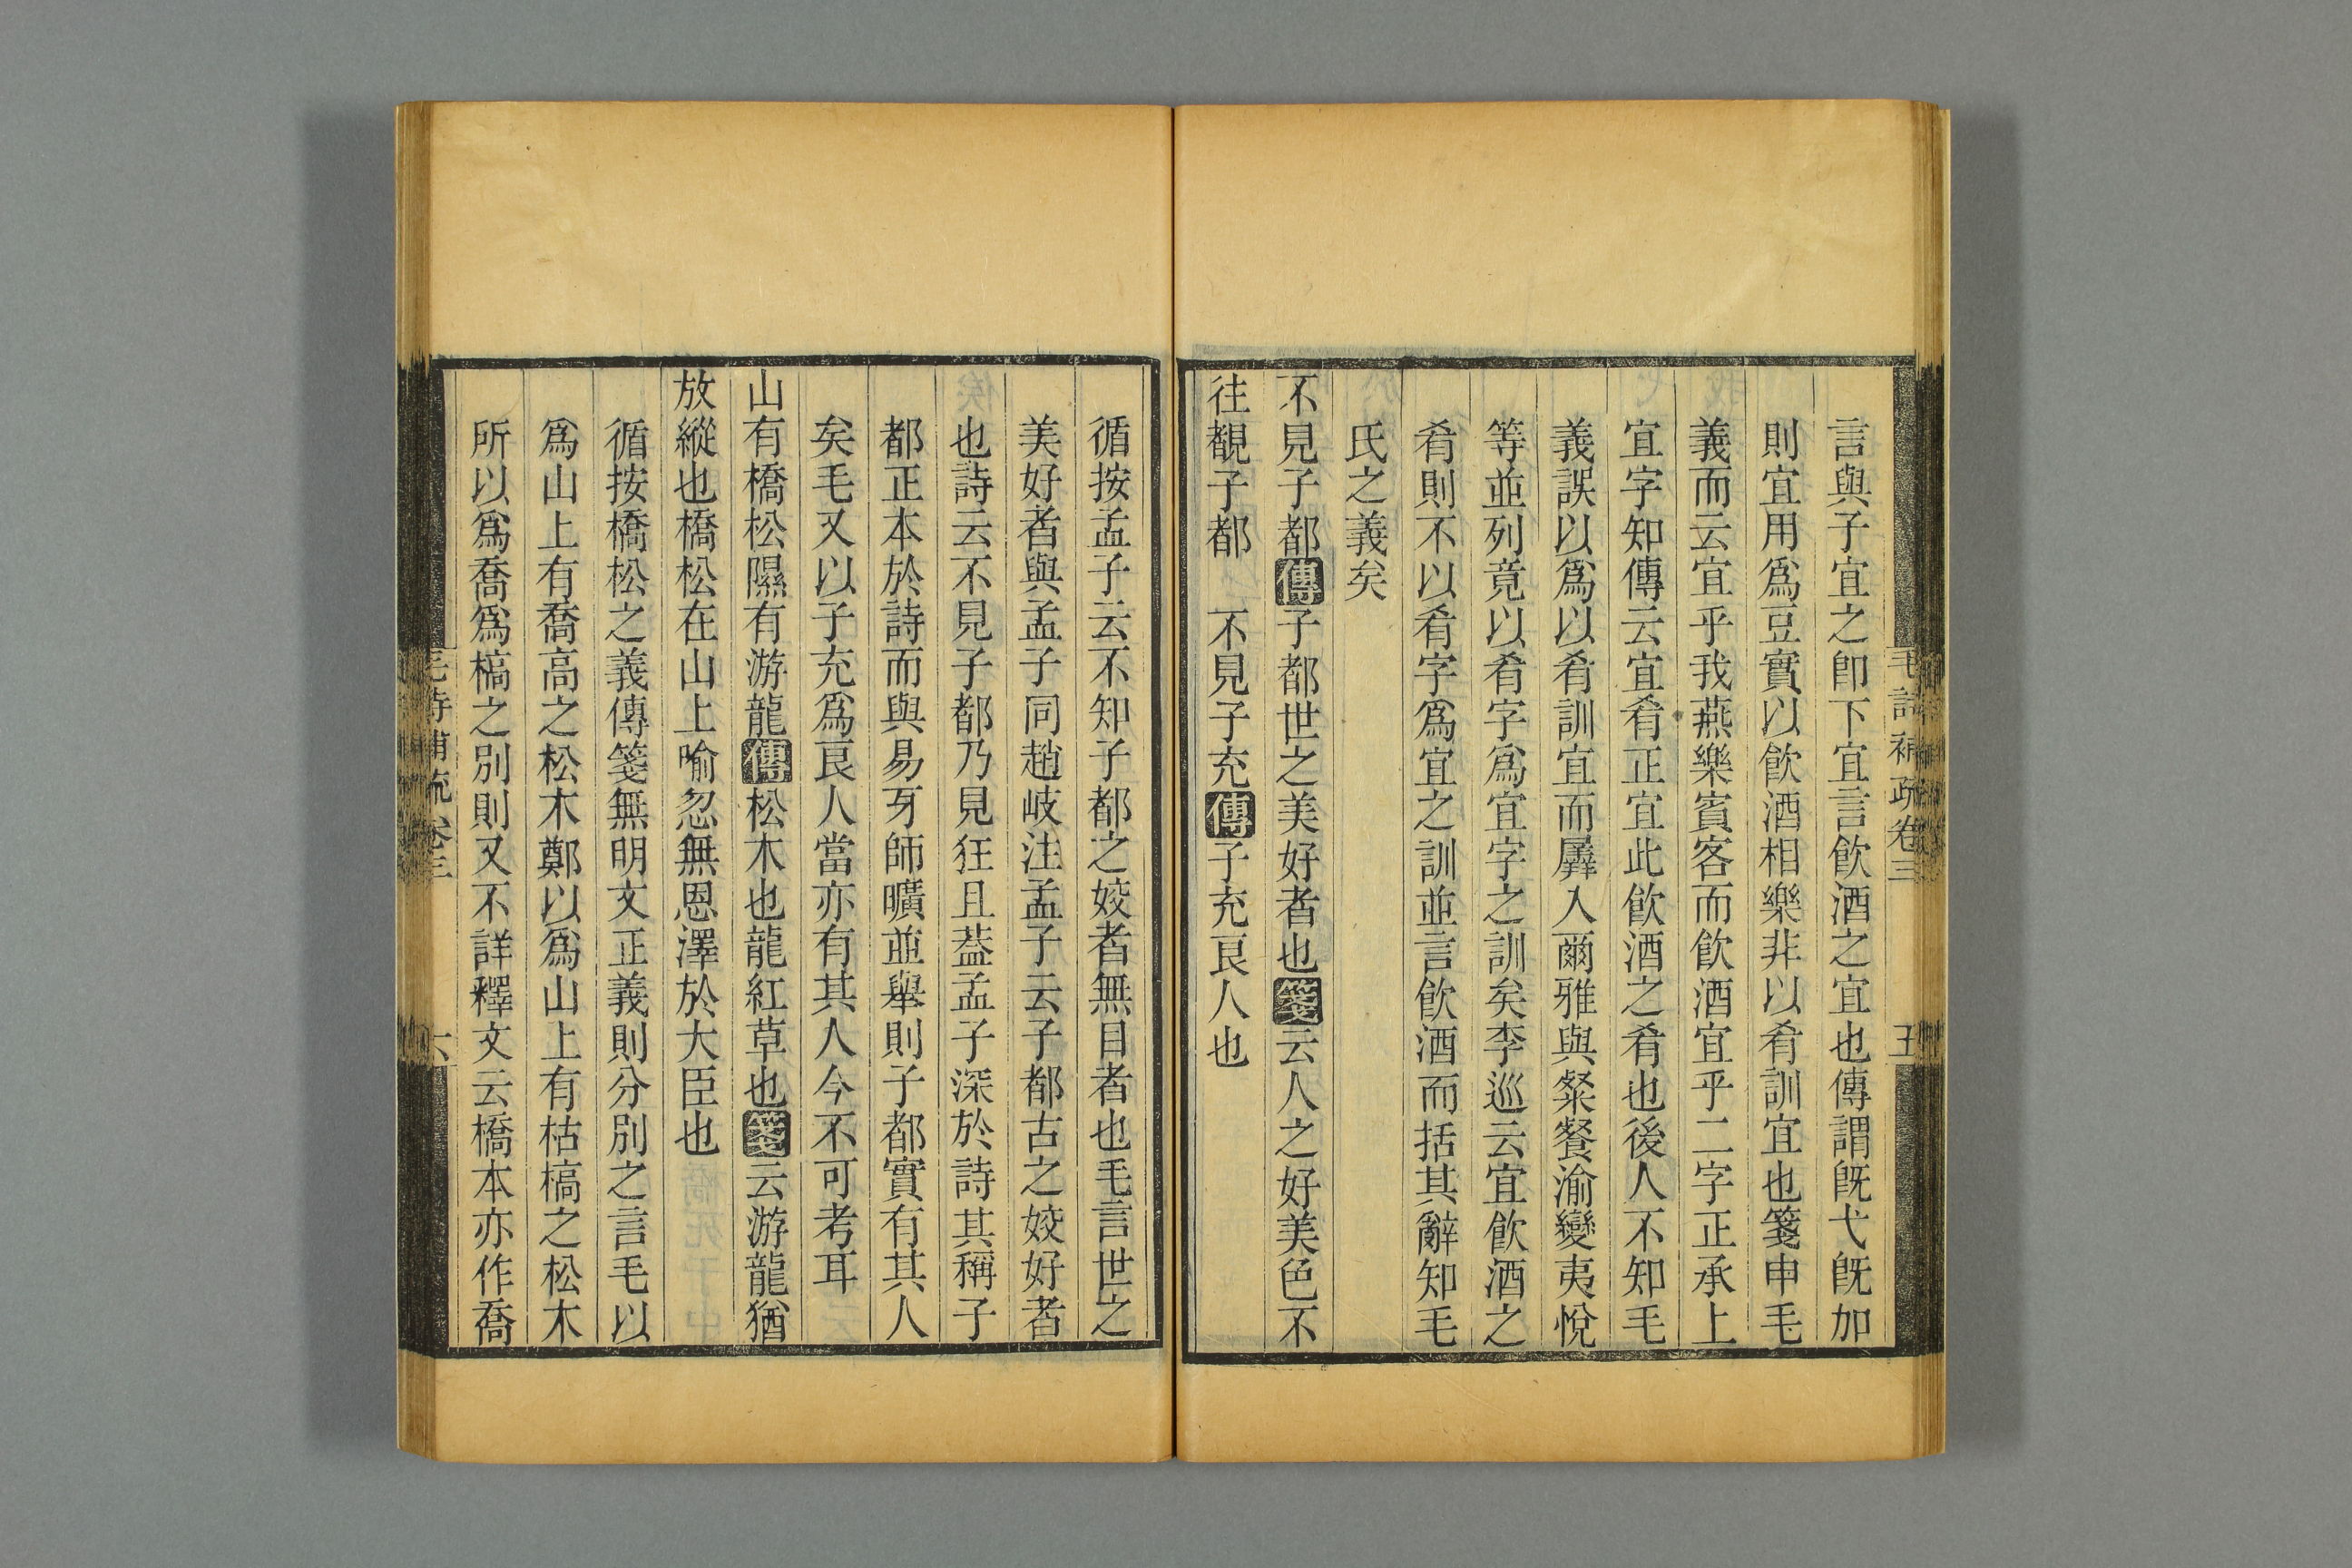 毛詩補疏卷三
五
言與子宜之卽下宜言飮酒之宜也傳謂旣弋旣加
則宜用爲豆實以飮酒相樂非以肴訓宜也箋申毛
義而云宜乎我燕樂賓客而飮酒宜乎二字正承上
宜字知傳云宜肴正宜此飮酒之肴也後人不知毛
義誤以爲以肴訓宜而羼入爾雅與粲餐渝變夷悅
等並列竟以肴字爲宜字之訓矣李巡云宜飮酒之
肴則不以肴字爲宜之訓並言飮酒而括其辭知毛
氏之義矣
不見子都傳子都世之美好者也箋云人之好美色不
往覩子都 不見子充傳子充良人也
循按孟子云不知子都之姣者無目者也毛言世之
美好者與孟子同趙岐注孟子云子都古之姣好者
也詩云不見子都乃見狂且葢孟子深於詩其稱子
都正本於詩而與易牙師曠並舉則子都實有其人
矣毛又以子充爲良人當亦有其人今不可考耳
山有橋松隰有游龍傳松木也龍紅草也箋云游龍猶
放縱也橋松在山上喻忽無恩澤於大臣也
循按橋松之義傳箋無明文正義則分別之言毛以
爲山上有喬高之松木鄭以爲山上有枯槁之松木
所以爲喬爲槁之別則又不詳釋文云橋本亦作喬
毛詩補疏卷三
六